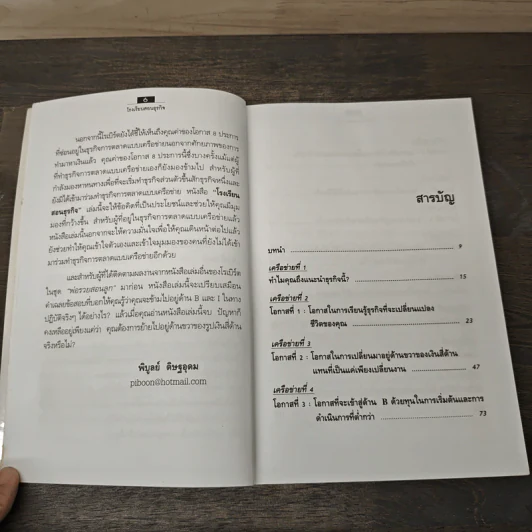 6
โรงเรียนสอนธุรกิจ
นอกจากนี้โรเบิร์ตยังได้ชี้ให้เห็นถึงคุณค่าของโอกาส 8 ประการ
ที่ซ่อนอยู่ในธุรกิจการตลาดแบบเครือข่ายนอกจากศักยภาพของการ
ทำมาหาเงินแล้ว คุณค่าของโอกาส 8 ประการนี้ซึ่งบางครั้งแม้แต่ผู้
ที่ทำธุรกิจการตลาดแบบเครือข่ายเองก็ยังมองข้ามไป สำหรับผู้ที่
กำลังมองหาหนทางเพื่อที่จะเริ่มทำธุรกิจส่วนตัวขึ้นสักธุรกิจหนึ่งและ
ยังมิได้เข้ามาร่วมทำธุรกิจการตลาดแบบเครือข่าย หนังสือ "โรงเรียน
สอนธุรกิจ" เล่มนี้จะให้ข้อคิดที่เป็นประโยชน์และช่วยให้คุณมีมุม
มองที่กว้างขึ้น สำหรับผู้ที่อยู่ในธุรกิจการตลาดแบบเครือข่ายแล้ว
หนังสือเล่มนี้นอกจากจะให้ความมั่นใจเพื่อให้คุณเดินหน้าต่อไปแล้ว
ยังช่วยทำให้คุณเข้าใจตัวเองและเข้าใจมุมมองของคนที่ยังไม่ได้เข้า
มาร่วมทำธุรกิจการตลาดแบบเครือข่ายอีกด้วย
และสำหรับผู้ที่ได้ติดตามผลงานจากหนังสือเล่มอื่นของโรเบิร์ต
ในชุด "พ่อรวยสอนลูก" มาก่อน หนังสือเล่มนี้จะเปรียบเสมือน
คำเฉลยข้อสอบที่บอกให้คุณรู้ว่าคุณจะข้ามไปอยู่ด้าน B และ I ในทาง
ปฏิบัติจริงๆ ได้อย่างไร? แล้วเมื่อคุณอ่านหนังสือเล่มนี้จบ ปัญหาก็
คงเหลืออยู่เพียงแค่ว่า คุณต้องการย้ายไปอยู่ด้านขวาของรูปเงินสี่ด้าน
จริงหรือไม่?
พิบูลย์ ดิษฐอุดม
piboon@hotmail.com
สารบัญ
บทนำ 9
เครือข่ายที่ 1
ทำไมคุณถึงแนะนำธุรกิจนี้? 15
เครือข่ายที่ 2
โอกาสที่ 1 : โอกาสในการเรียนรู้ธุรกิจที่จะเปลี่ยนแปลง
ชีวิตของคุณ 23
เครือข่ายที่ 3
โอกาสที่ 2 : โอกาสในการเปลี่ยนมาอยู่ด้านขวาของเงินสี่ด้าน
แทนที่เป็นแต่เพียงเปลี่ยนงาน 47
เครือข่ายที่ 4
โอกาสที่ 3 : โอกาสที่จะเข้าสู่ด้าน B ด้วยทุนในการเริ่มต้นและการ
ดำเนินการที่ต่ำกว่า 73